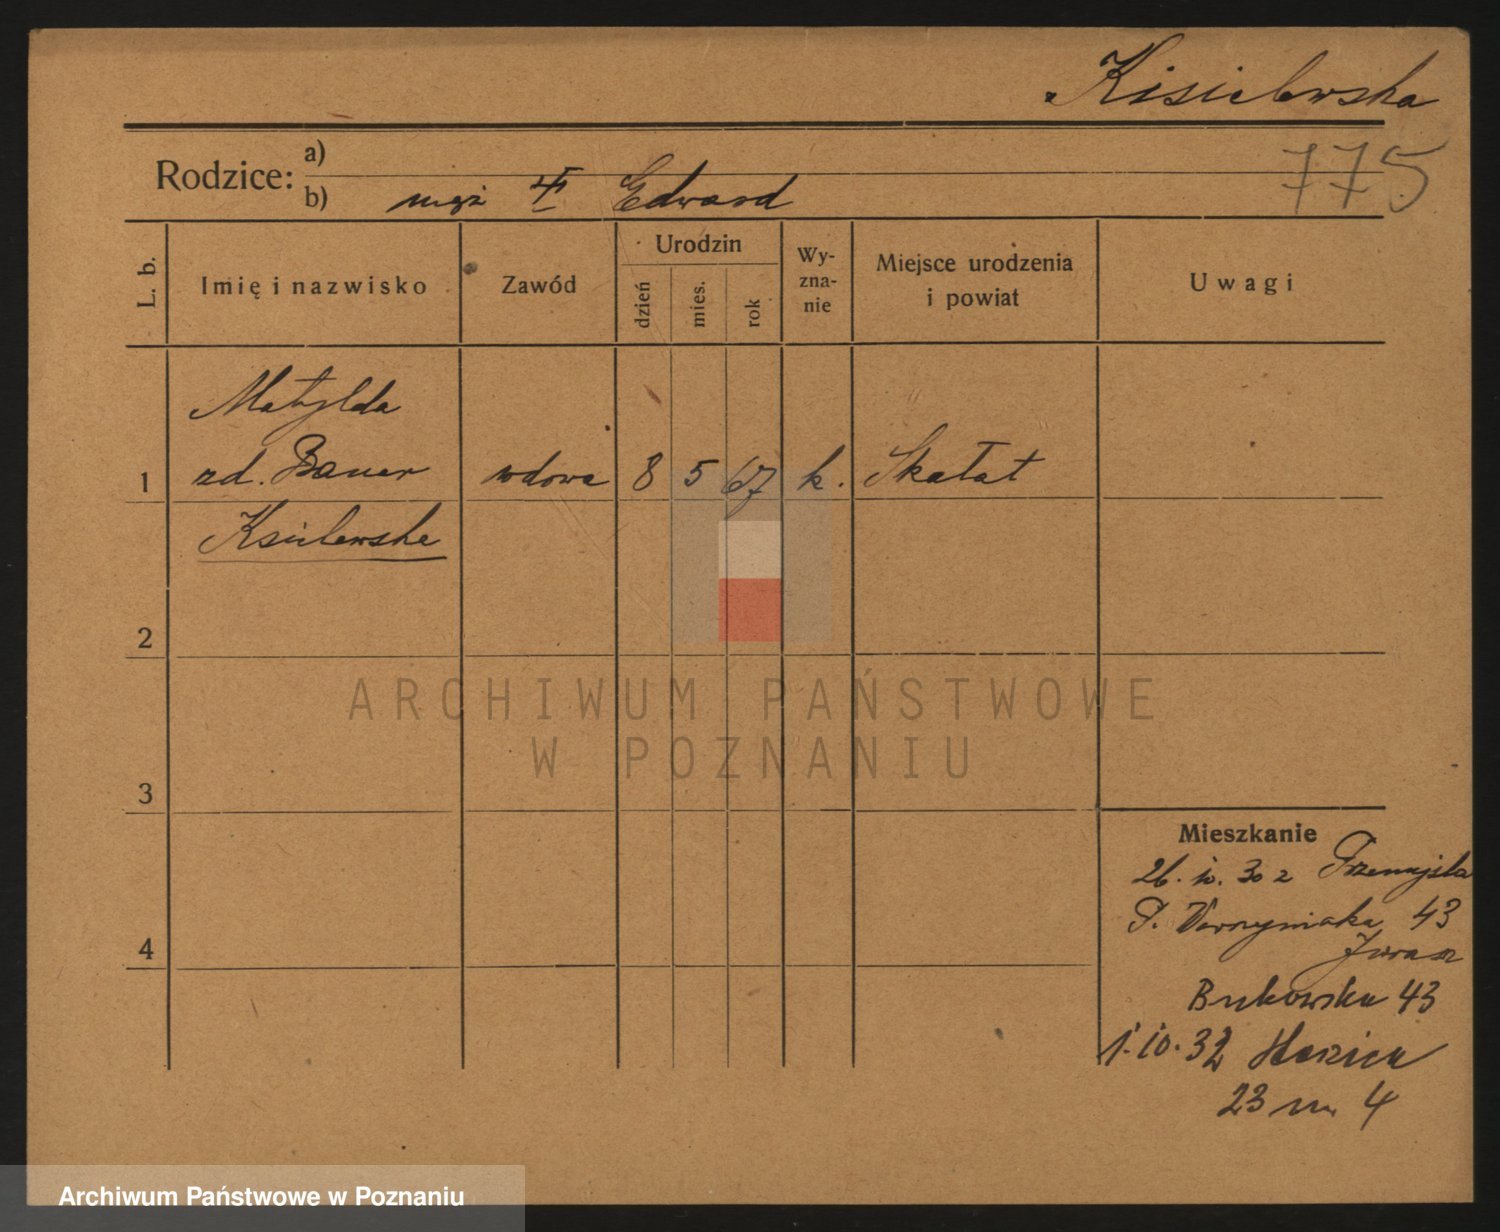 Kisielewska
775
Rodzice: a)
b) mąż ✝ Edward
L. b.
Imię i nazwisko
Zawód
Urodzin
dzień
mies.
rok
Wy-
zna-
nie
Miejsce urodzenia
i powiat
Uwagi
Matylda
1 zd. Bauer wdowa 8 5 67 k. Skałat
2
3
4
Mieszkanie
26. 10. 30 z Przemyśla
P. 43
Bukowska 43
1.10.32
23 m 4
ARCHIWUM PAŃSTWOWE
W POZNANIU
Archiwum Państwowe w Poznaniu